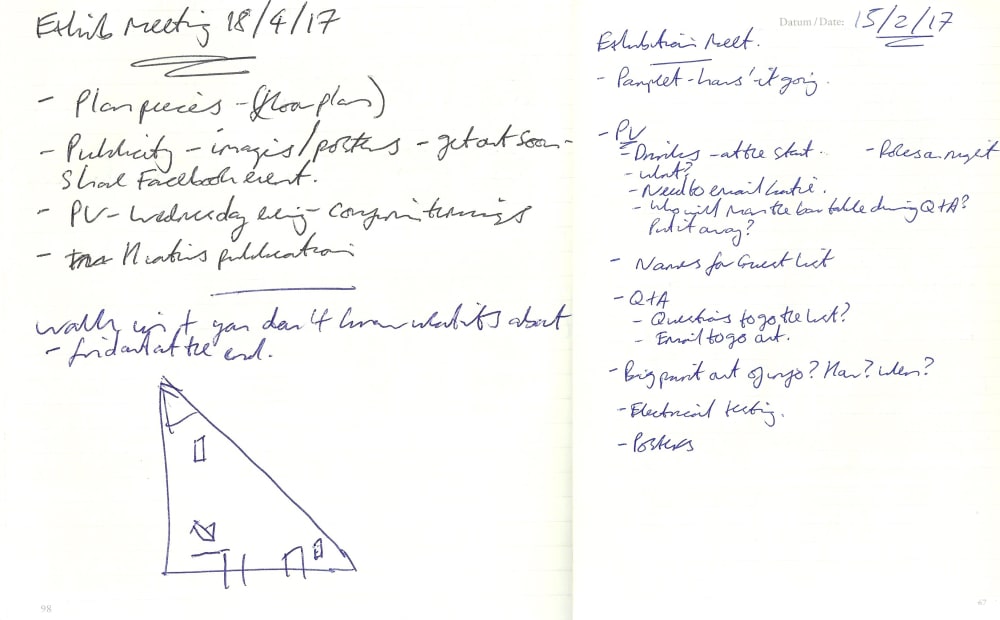 Exhib Meeting 18/4/17
- Plan pieces - (floor plan)
- Publicity - images/posters - get out soon -
Share Facebook event.
- PV - Wednesday evening - confirm timings
- publication
Walk in + you don't know what it's about
- find out at the end.
98
Datum / Date: 15/2/17
Exhibition Meet.
- Pamplet - how's it going.
- PV
- Drinks - at the start. - Roles on night
- what?
- Need to email Katie.
- Who will man the bar table during Q+A?
Put it away?
- Names for Guest List
- Q+A
- Questions to go the list?
- Email to go out.
- Big print out of info? How? When?
- Electrical testing.
- Posters
67